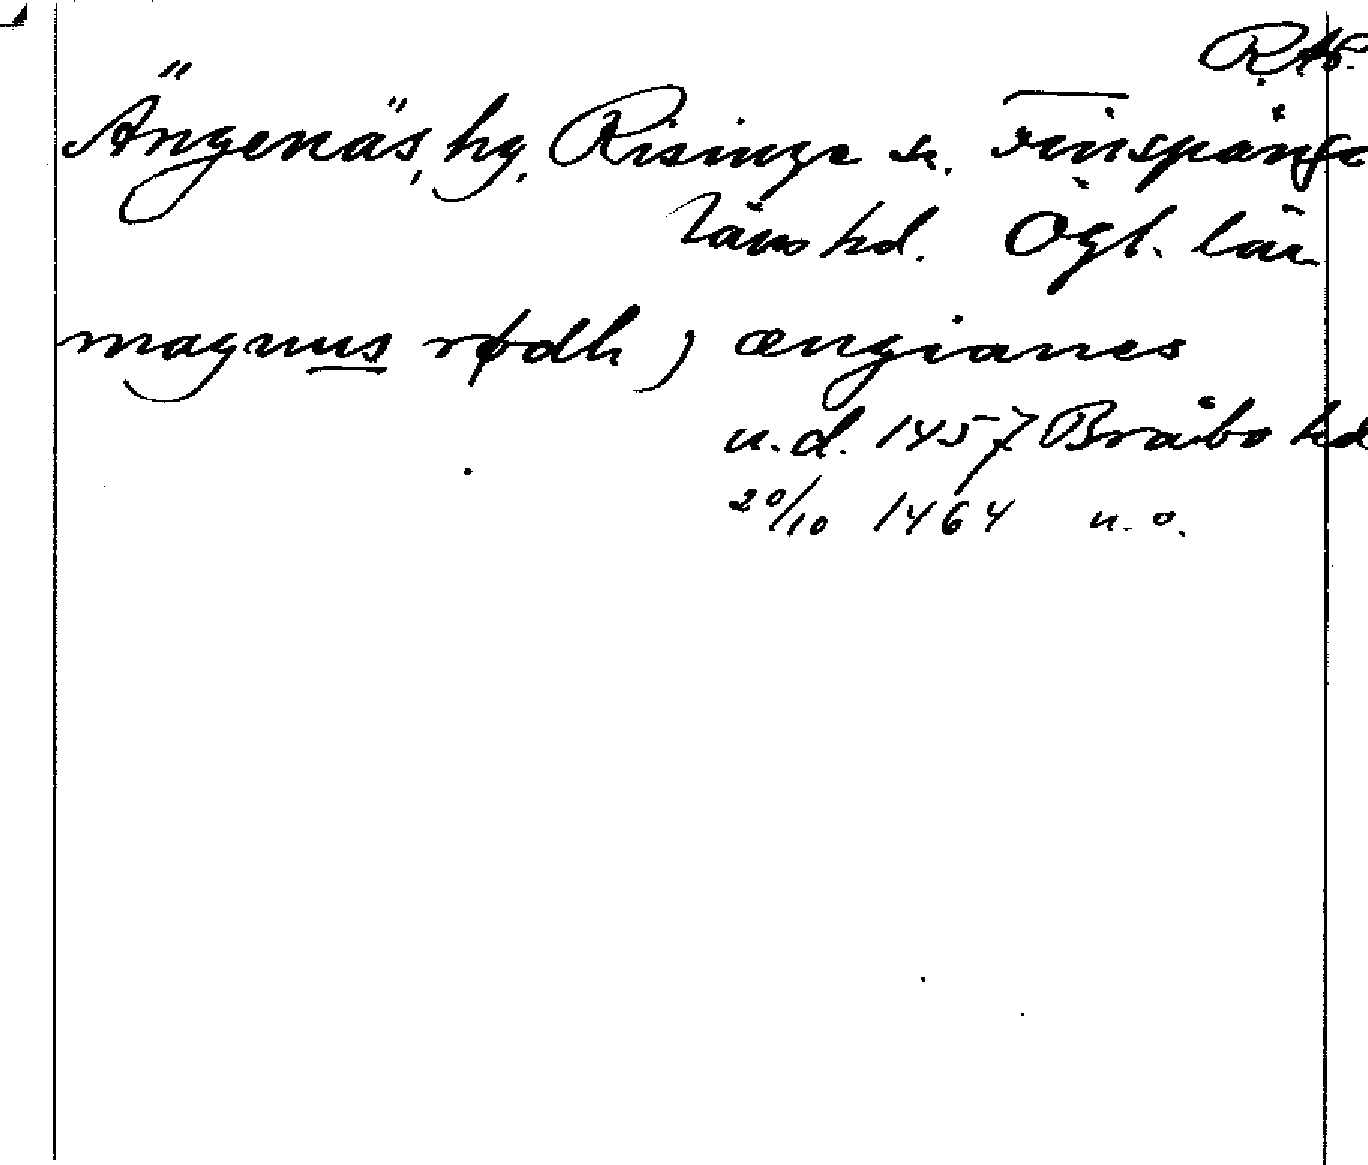 RAp.
Ängenäs, hg, Risinge sn. Finspånga
läns hd. Ögl. län
magnus rødh ) ængianes
u.d. 1457 Bråbo hd
20/10 1464 u. o.